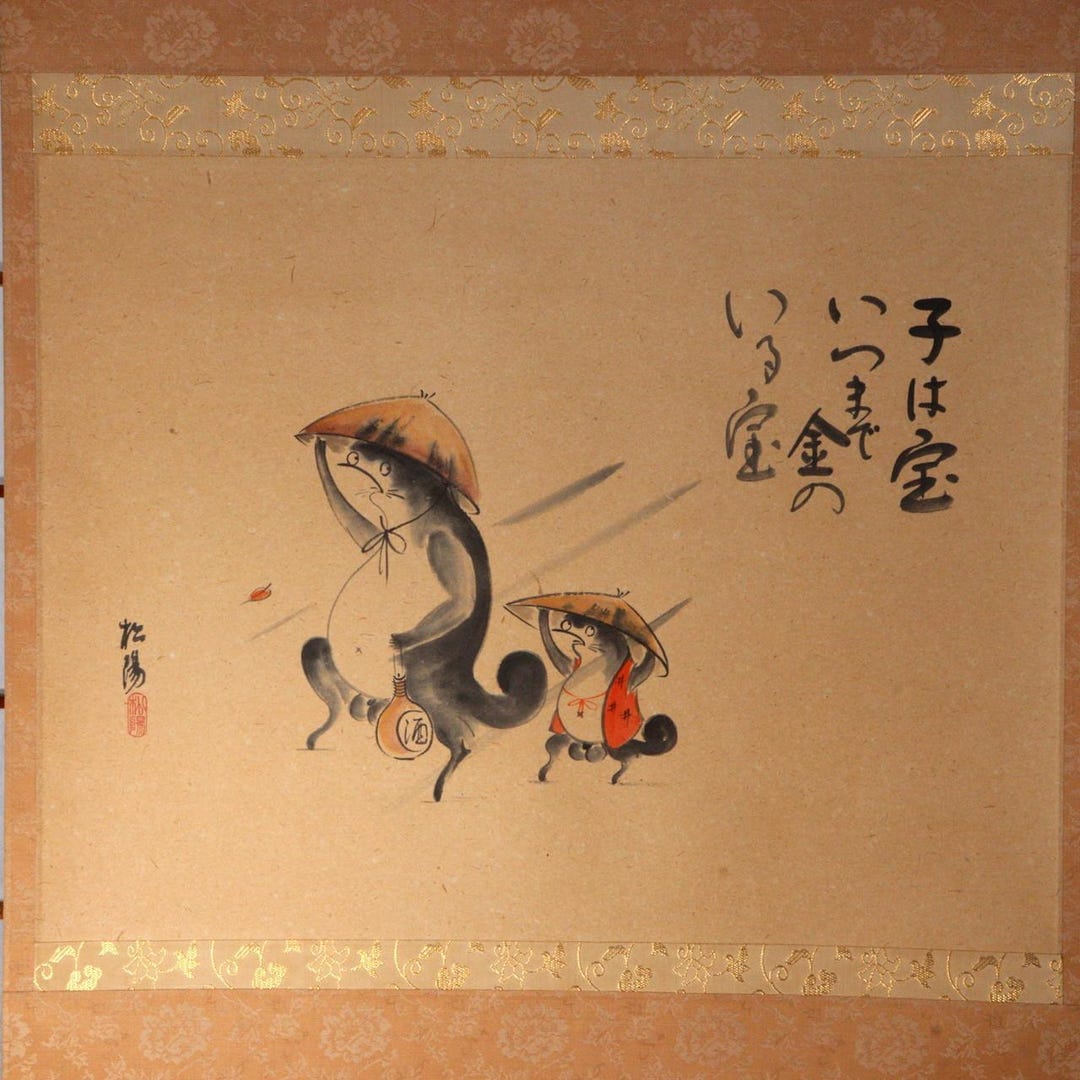 子は宝
いつまで
金の
いる宝
松陽
酒